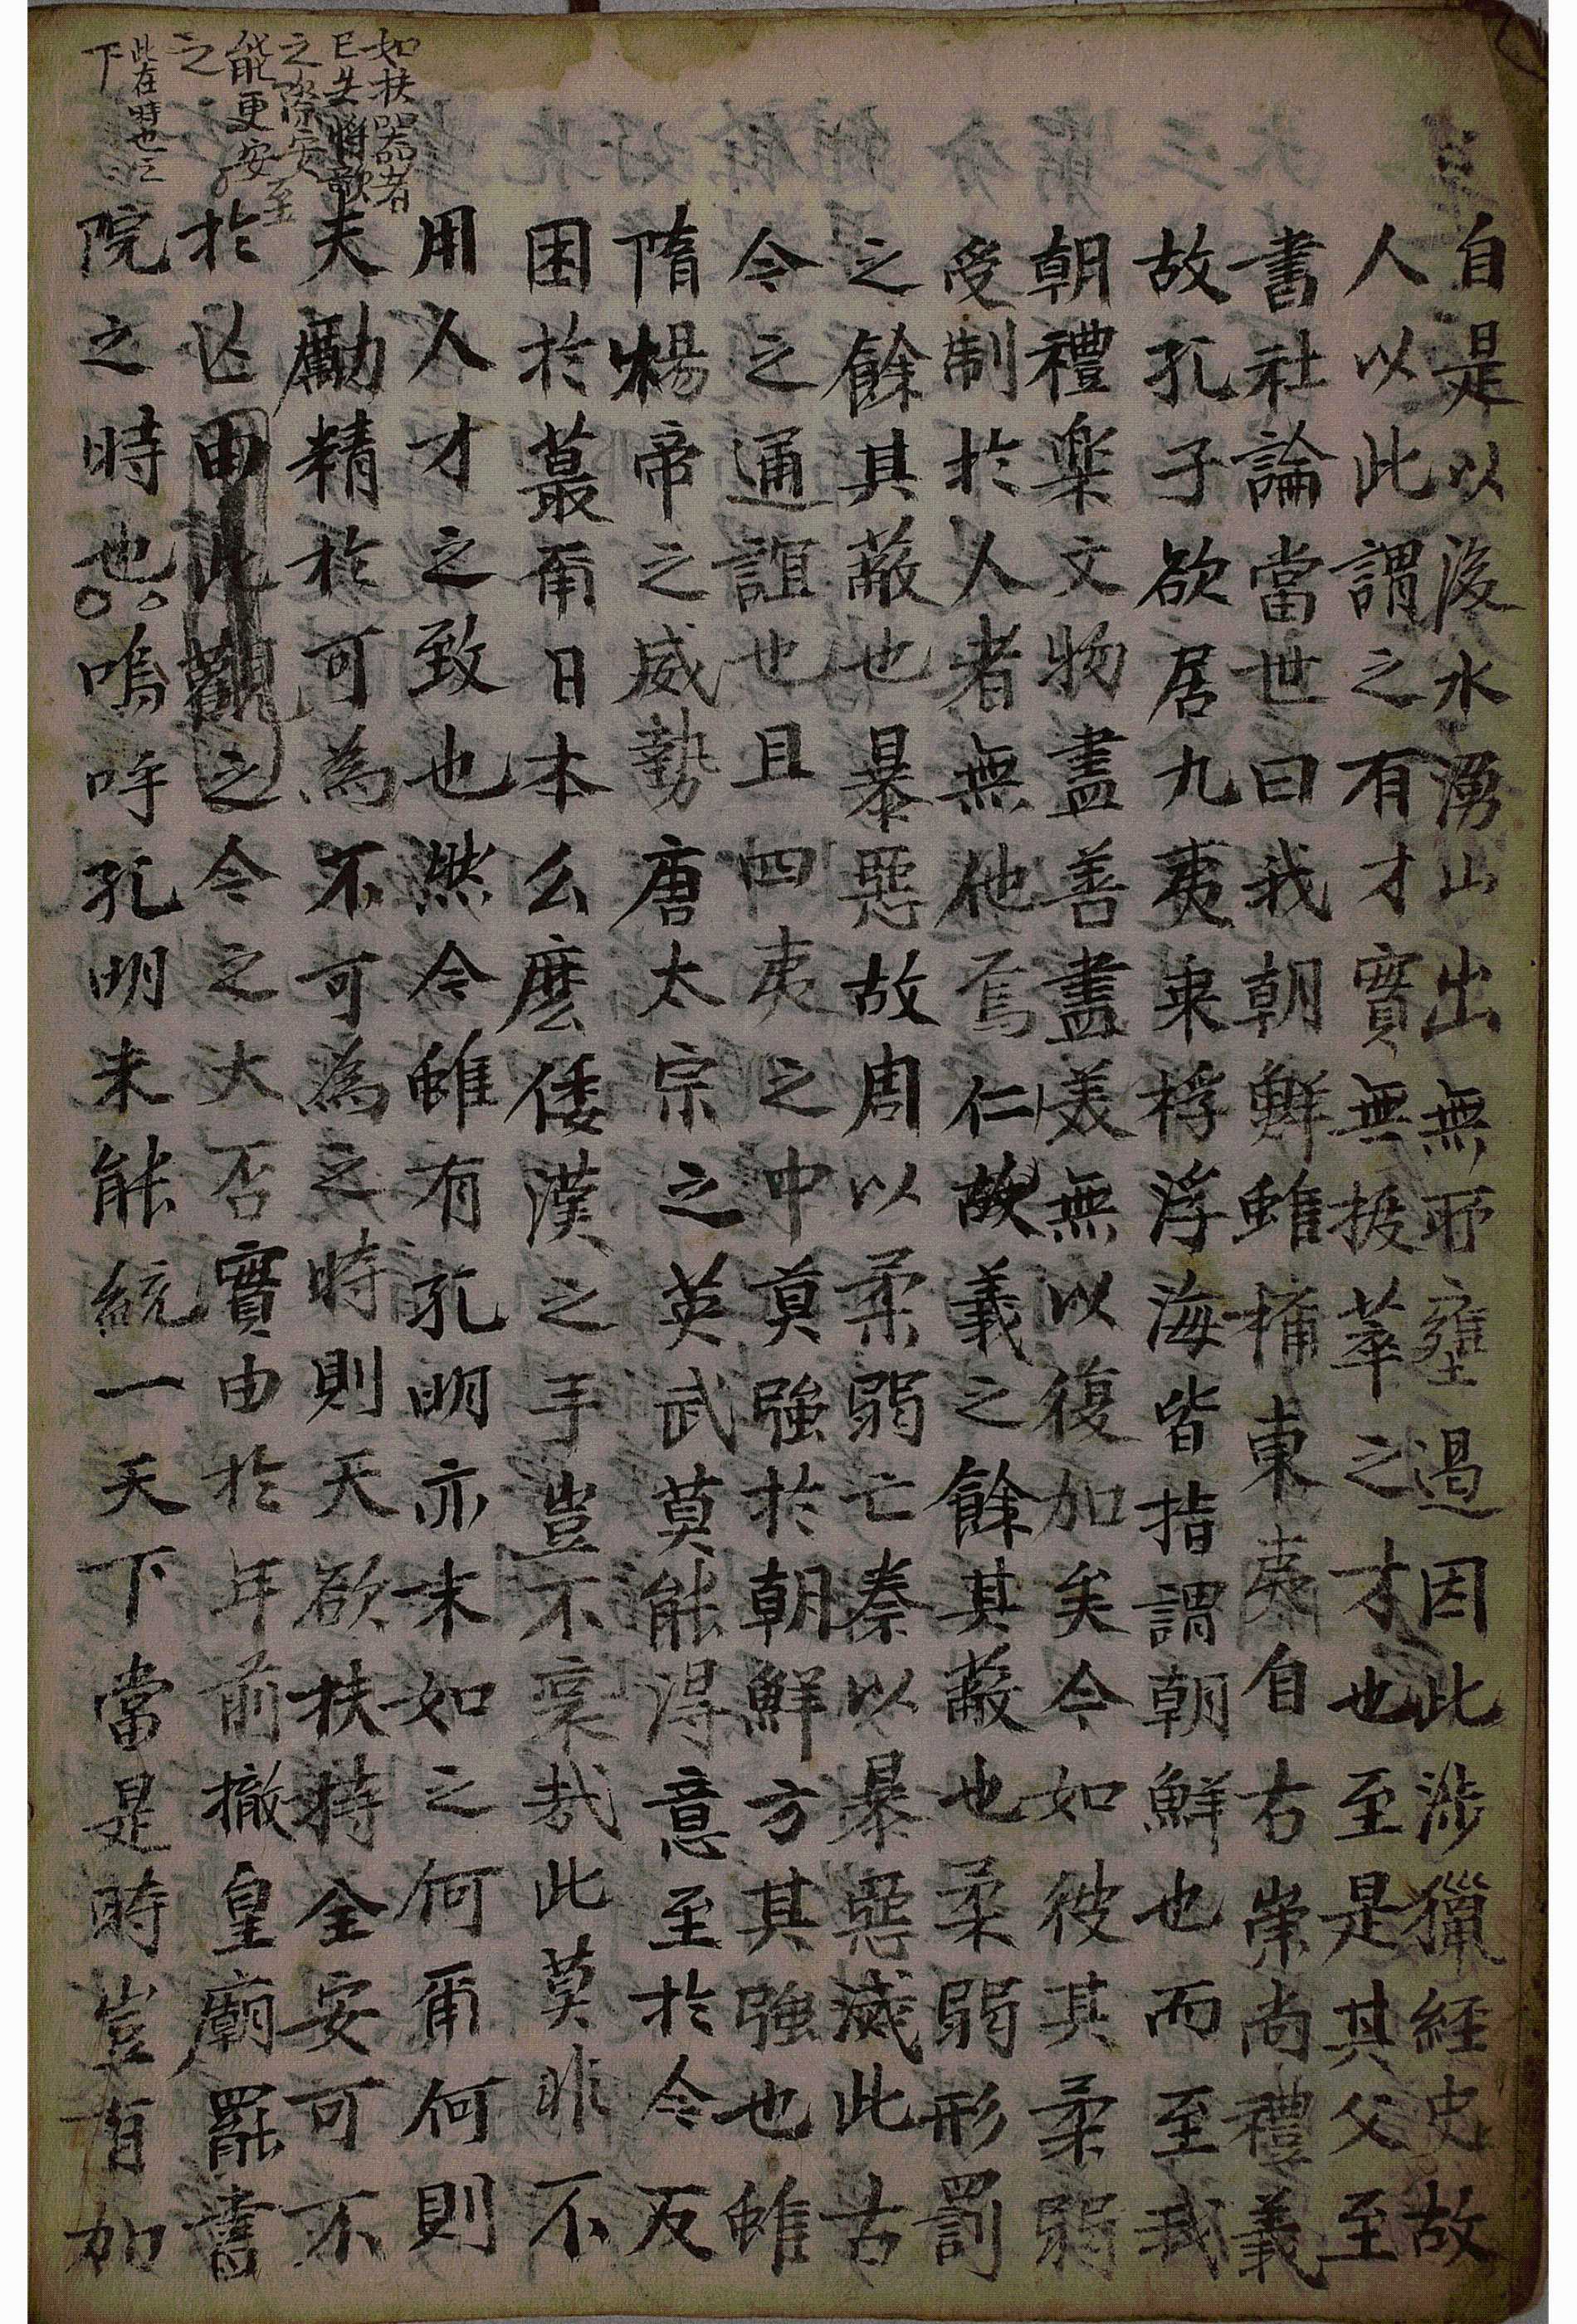 自是以後水湧山出無耶壅遏因此涉獵經史故
人以此謂之有才實無拔萃之才也至是其父至
書社論當世曰我朝鮮雖稱東夷自古崇尚禮義
故孔子欲居九夷乘桴浮海皆指謂朝鮮也而至我
朝禮樂文物盡善盡美無以復加矣今如彼其柔弱
受制於人者無他焉仁故義之餘其蔽也柔弱形罰
之餘其蔽也暴惡故周以柔弱亡秦以暴惡滅此古
今之通誼也且四夷之中莫強於朝鮮方其強也雖
隋楊帝之威勢唐太宗之英武莫能得意至於今反
困於蕞爾日本么麽倭漢之手豈不哀哉此莫非不
用人才之致也然今雖有孔明亦未如之何爾何則
夫勵精於可為不可為之時則天欲扶持全安可不
於此由此觀之今之大否實由於年前撤皇廟罷書
院之時也嗚呼孔明未能統一天下當是時豈有加
如扶器者
已失將歌
之際安至
能更安
之
此在時也之
下